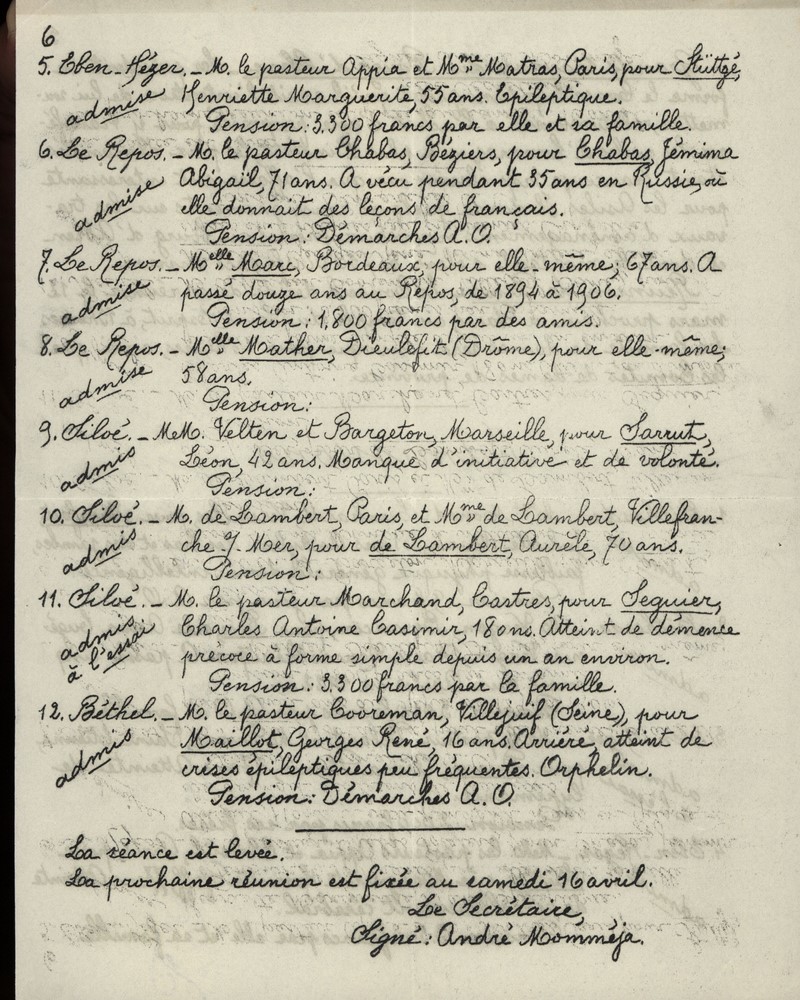 6
5. Eben-Hézer. - M. le pasteur Appia et Mme Matras, Paris, pour Stüttgé,
admise Henriette Marguerite, 55 ans. Epileptique.
Pension: 3.300 francs par elle et sa famille.
6. Le Repos. - M. le pasteur Chabas, Béziers, pour Chabas, Jémima
admise Abigail, 71 ans. A vécu pendant 35 ans en Russie, où
elle donnait des leçons de français.
Pension: Démarches A. O.
7. Le Repos. - Melle Marc, Bordeaux, pour elle-même; 67 ans. A
admise passé douze ans au Repos, de 1894 à 1906.
Pension: 1.800 francs par des amis.
8. Le Repos. - Melle Mather, Dieulefit (Drôme), pour elle-même;
admise 58 ans.
Pension:
9. Siloé. - MeM. Velten et Bargeton, Marseille, pour Sarrut,
admis Léon, 42 ans. Manque d'initiative et de volonté.
Pension:
10. Siloé. - M. de Lambert, Paris, et Mme de Lambert, Villefran-
admis che s/ Mer, pour de Lambert, Aurèle, 70 ans.
Pension:
11. Siloé. - M. le pasteur Marchand, Castres, pour Seguier,
admis à l'essai Charles Antoine Casimir, 18 ans. Atteint de démence
précoce à forme simple depuis un an environ.
Pension: 3.300 francs par la famille.
12. Béthel. - M. le pasteur Cooreman, Villejuif (Seine), pour
admis Maillot, Georges René, 16 ans. Arriéré, atteint de
crises épileptiques peu fréquentes. Orphelin.
Pension: Démarches A. O.
La séance est levée.
La prochaine réunion est fixée au samedi 16 avril.
Le Secrétaire,
Signé: André Momméja.